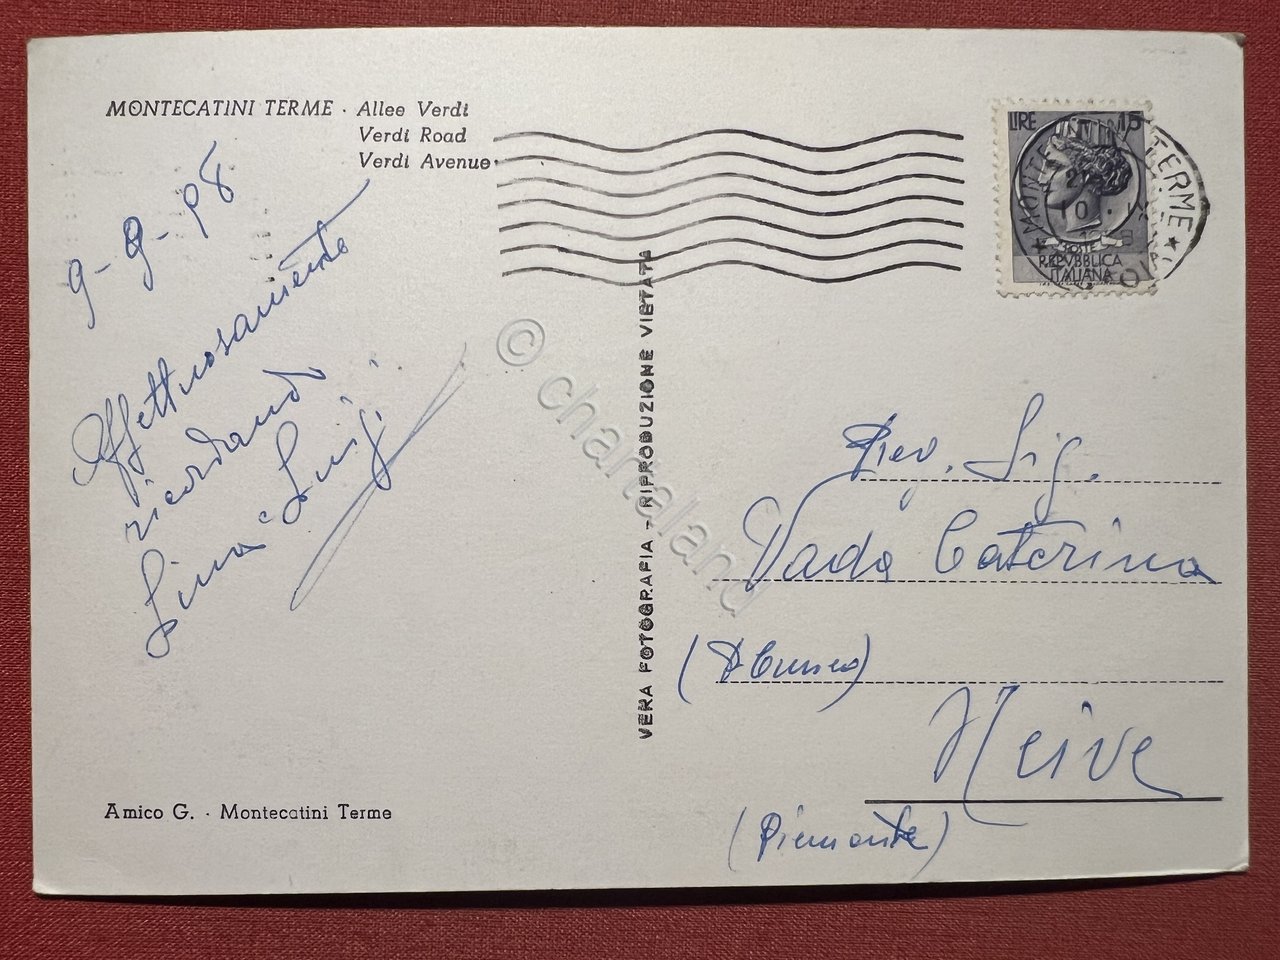 MONTECATINI TERME · Allee Verdi
Verdi Road
Verdi Avenue
9-9-958
Affettuosamente
ricordando
Lina e Luigi
Amico G. · Montecatini Terme
VERA FOTOGRAFIA – RIPRODUZIONE VIETATA
© chartaland
LIRE 15
POSTE
REPVBBLICA
ITALIANA
MONTE TERME
10 · IX
Sig.
Vada Caterina
(Cuneo)
Neive
(Piemonte)